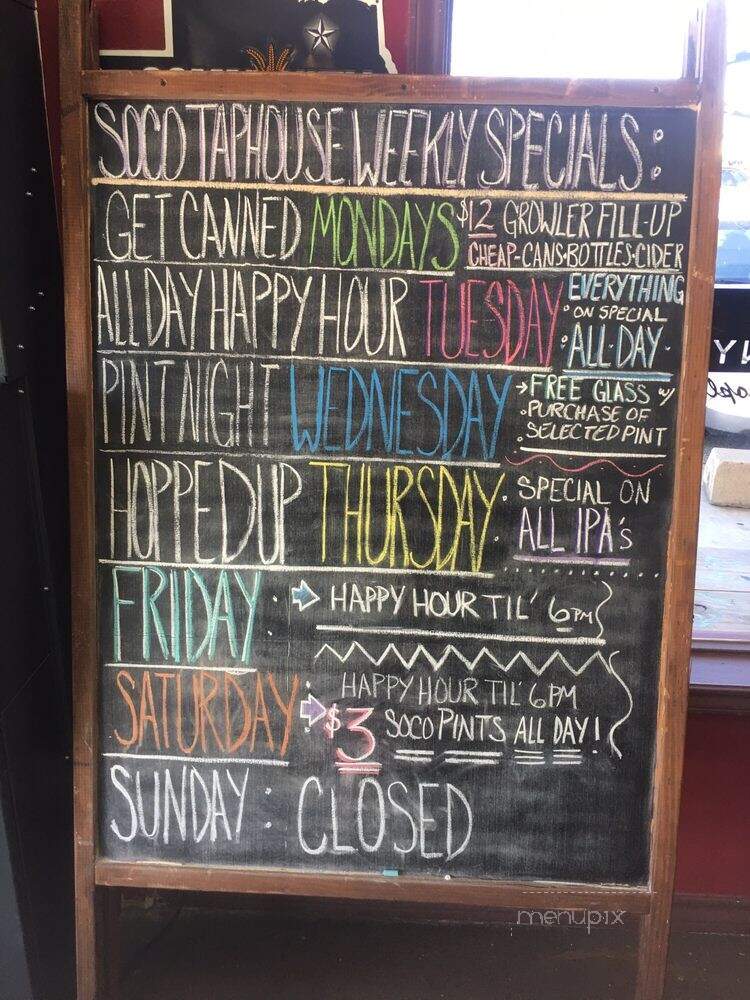 SOCO TAPHOUSE WEEKLY SPECIALS:
GET CANNED MONDAYS $12 GROWLER FILL-UP
CHEAP-CANS•BOTTLES•CIDER
ALL DAY HAPPY HOUR TUESDAY EVERYTHING
• ON SPECIAL
• ALL DAY •
PINT NIGHT WEDNESDAY → FREE GLASS w/
• PURCHASE OF
• SELECTED PINT
HOPPED UP THURSDAY • SPECIAL ON
ALL IPA's
FRIDAY: → HAPPY HOUR TIL' 6PM
SATURDAY: → HAPPY HOUR TIL' 6PM
$3 SOCO PINTS ALL DAY!
SUNDAY: CLOSED
menupix